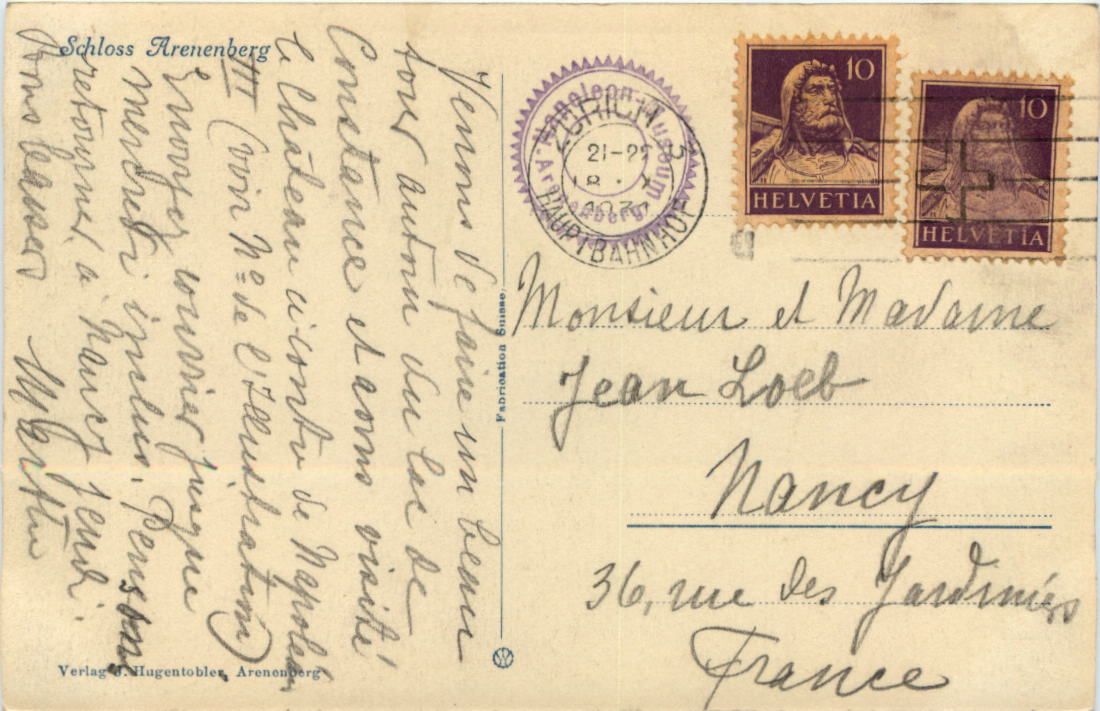 Schloss Arenenberg
Venons de faire un beau
tour autour du Lac de
Constance et avons visité
le Château ci contre de Napoléon
III (voir Nº de l'Illustration)
Envoyez courrier jusque
mercredi inclus. Pensons
retourner à Nancy jeudi.
Bons baisers
Verlag J. Hugentobler, Arenenberg
Fabrication Suisse.
Napoleon-Museum
Arenenberg
ZÜRICH 3
21-22
HAUPTBAHNHOF
10
HELVETIA
10
HELVETIA
Monsieur et Madame
Jean Loeb
Nancy
36, rue des Jardiniers
France